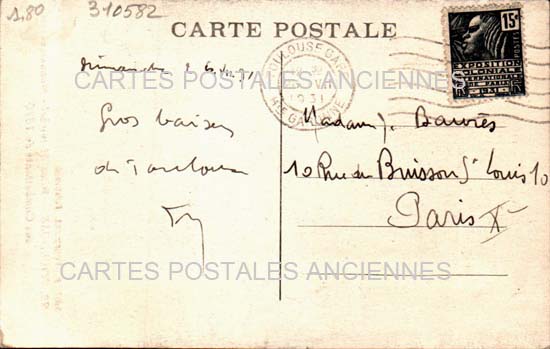 1,80
310582
CARTE POSTALE
15c
EXPOSITION
COLONIALE
INTERNATIONALE
PARIS
1931
POSTES
TOULOUSE GARE
1931
HTE GARONNE
Dimanche
CARTES POSTALES ANCIENNES
Gros baisers
de Toulouse
Madame J. Baurès
10 Rue du Buisson St Louis 10
Paris X
CARTES POSTALES ANCIENNES